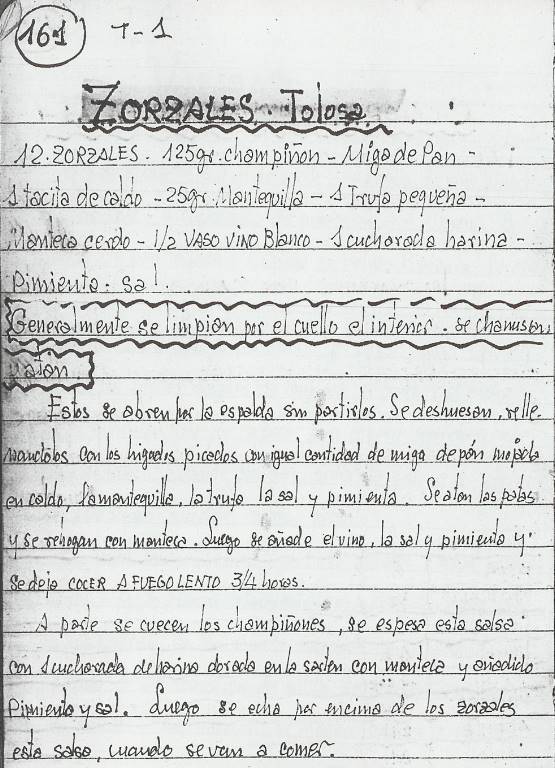 161 T-1
ZORZALES. Tolosa
12. ZORZALES. 125gr. champiñon - Miga de Pan -
1 tacita de caldo - 25gr. Mantequilla - 1 Trufa pequeña -
Manteca cerdo - 1/2 VASO VINO Blanco - 1 cucharada harina -
Pimienta. Sal.
Generalmente se limpian por el cuello el interior. se chamuscan
y atan
Estos se abren por la espalda sin partirlos. Se deshuesan, relle
nandolos con los higados picados con igual cantidad de miga de pan mojada
en caldo, la mantequilla, la trufa la sal y pimienta. Se atan las patas
y se rehogan con manteca. Luego se añade el vino, la sal y pimienta y
se deja COCER A FUEGO LENTO 3/4 horas.
A parte se cuecen los champiñones, se espesa esta salsa
con 1 cucharada de harina dorada en la sarten con manteca y añadido
Pimienta y sal. Luego se echa por encima de los zorzales
esta salsa, cuando se van a comer.